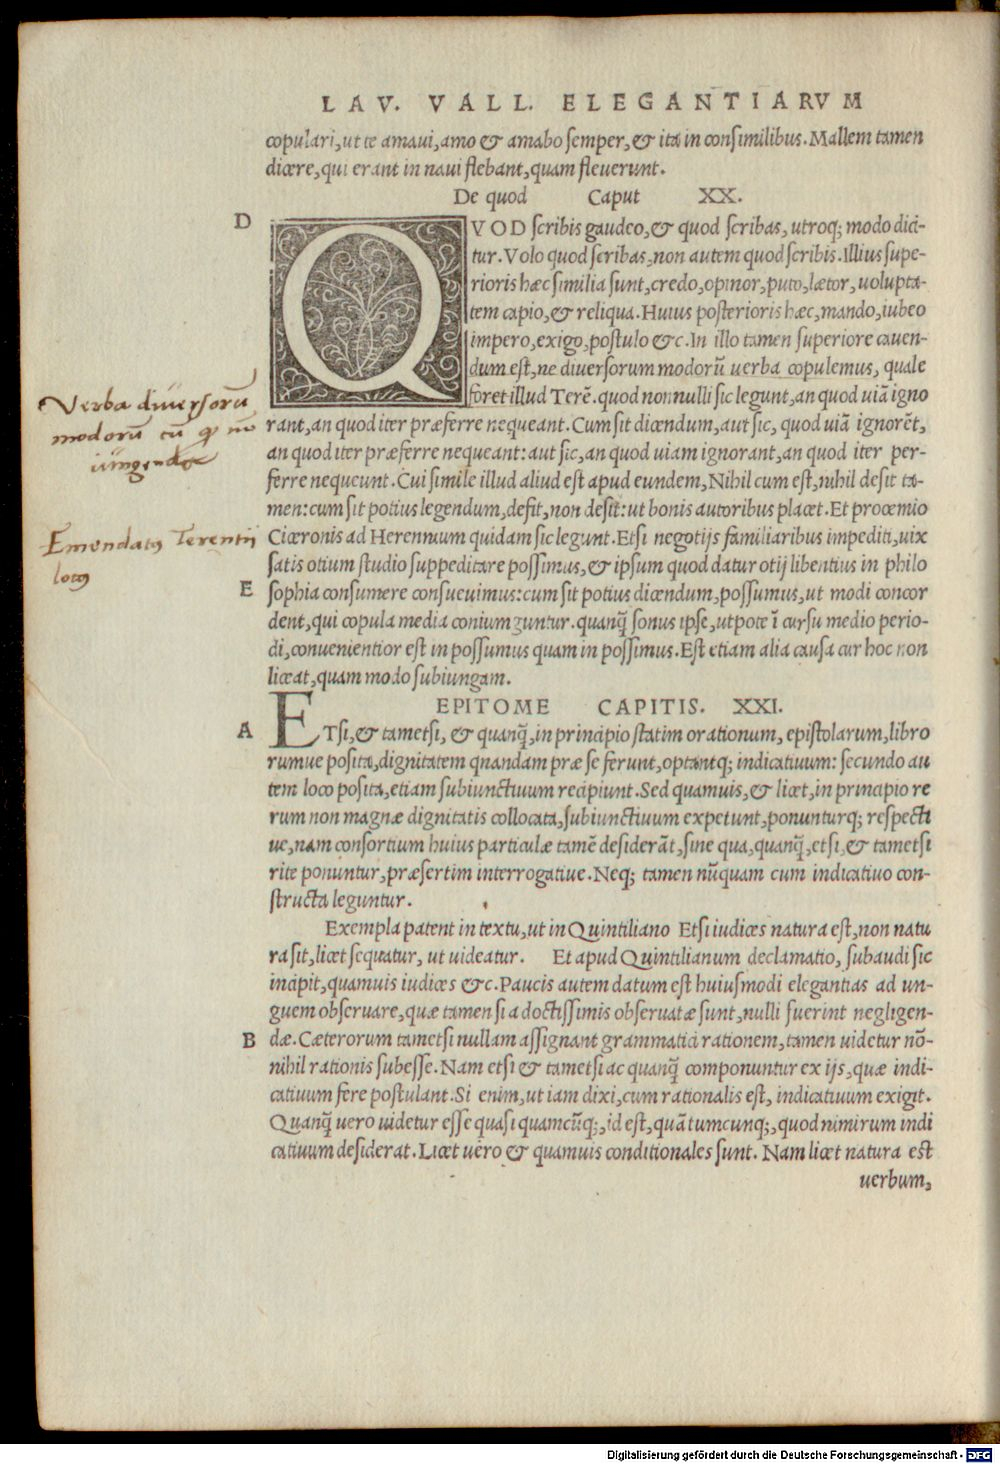 LAV. VALL. ELEGANTIARVM
copulari, ut te amaui, amo & amabo semper, & ita in consimilibus. Mallem tamen
dicere, qui erant in naui flebant, quam fleuerunt.
De quod Caput XX.
D
QVOD scribis gaudeo, & quod scribas, utroq; modo dici-
tur. Volo quod scribas, non autem quod scribis. Illius supe-
rioris hæc similia sunt, credo, opinor, puto, lætor, uolupta-
tem capio, & reliqua. Huius posterioris hæc, mando, iubeo
impero, exigo, postulo &c. In illo tamen superiore cauen-
dum est, ne diuersorum modorũ uerba copulemus, quale
foret illud Terẽ. quod nonnulli sic legunt, an quod uiã igno
Verba diuersorũ
modorũ cũ quod nõ
iungenda
rant, an quod iter præferre nequeant. Cum sit dicendum, aut sic, quod uiã ignorẽt,
an quod iter præferre nequeant: aut sic, an quod uiam ignorant, an quod iter per-
ferre nequeunt. Cui simile illud aliud est apud eundem, Nihil cum est, nihil desit ta-
men: cum sit potius legendum, defit, non desit: ut bonis autoribus placet. Et procemio
Emendatus Terentii
locus
Ciceronis ad Herennium quidam sic legunt. Etsi negotijs familiaribus impediti, uix
satis otium studio suppeditare possimus, & ipsum quod datur otij libentius in philo
E
sophia consumere consueuimus: cum sit potius dicendum, possumus, ut modi concor
dent, qui copula media coniunguntur. quanq̃ sonus ipse, utpote ĩ cursu medio perio-
di, conuenientior est in possumus quam in possimus. Est etiam alia causa cur hoc non
liceat, quam modo subiungam.
EPITOME CAPITIS. XXI.
A
ETsi, & tametsi, & quanq̃, in principio statim orationum, epistolarum, libro
rumue posita, dignitatem quandam præ se ferunt, optantq; indicatiuum: secundo au
tem loco posita, etiam subiunctiuum recipiunt. Sed quamuis, & licet, in principio re
rum non magnæ dignitatis collocata, subiunctiuum expetunt, ponunturq; respecti
ue, nam consortium huius particulæ tamẽ desiderãt, sine qua, quanq̃, etsi, & tametsi
rite ponuntur, præsertim interrogatiue. Neq; tamen nũquam cum indicatiuo con-
structa leguntur.
Exempla patent in textu, ut in Quintiliano Etsi iudices natura est, non natu
ra sit, licet sequatur, ut uideatur. Et apud Quintilianum declamatio, subaudi sic
incipit, quamuis iudices &c. Paucis autem datum est huiusmodi elegantias ad un-
guem obseruare, quæ tamen si a doctissimis obseruatæ sunt, nulli fuerint negligen-
B
dæ. Cæterorum tametsi nullam assignant grammatici rationem, tamen uidetur nõ-
nihil rationis subesse. Nam etsi & tametsi ac quanq̃ componuntur ex ijs, quæ indi-
catiuum fere postulant. Si enim, ut iam dixi, cum rationalis est, indicatiuum exigit.
Quanq̃ uero uidetur esse quasi quamcũq;, id est, quãtumcunq;, quod nimirum indi
catiuum desiderat. Licet uero & quamuis conditionales sunt. Nam licet natura est
uerbum,
Digitalisierung gefördert durch die Deutsche Forschungsgemeinschaft - DFG